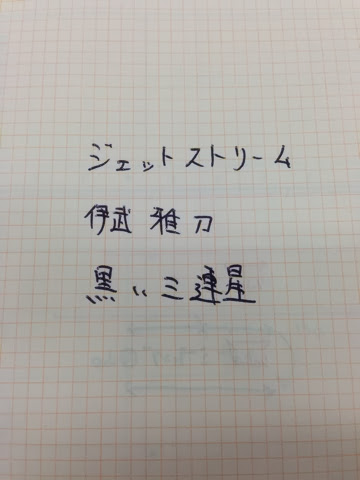 ジェットストリーム
伊武雅刀
黒い三連星